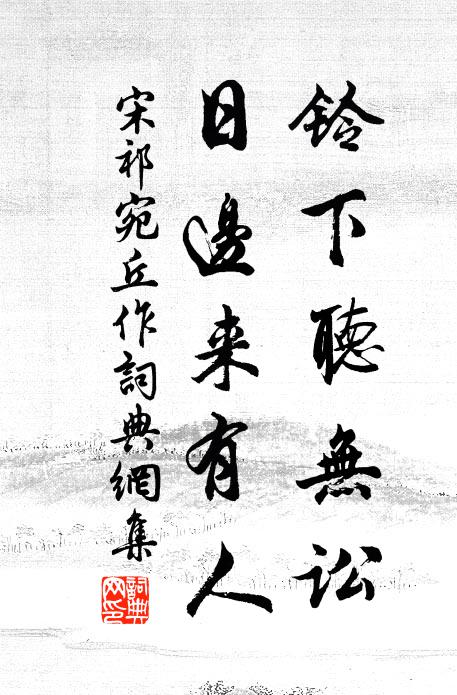 鈴下聽無訟
日邊來有人
宋祁宛丘作詞典網集
詞典网印